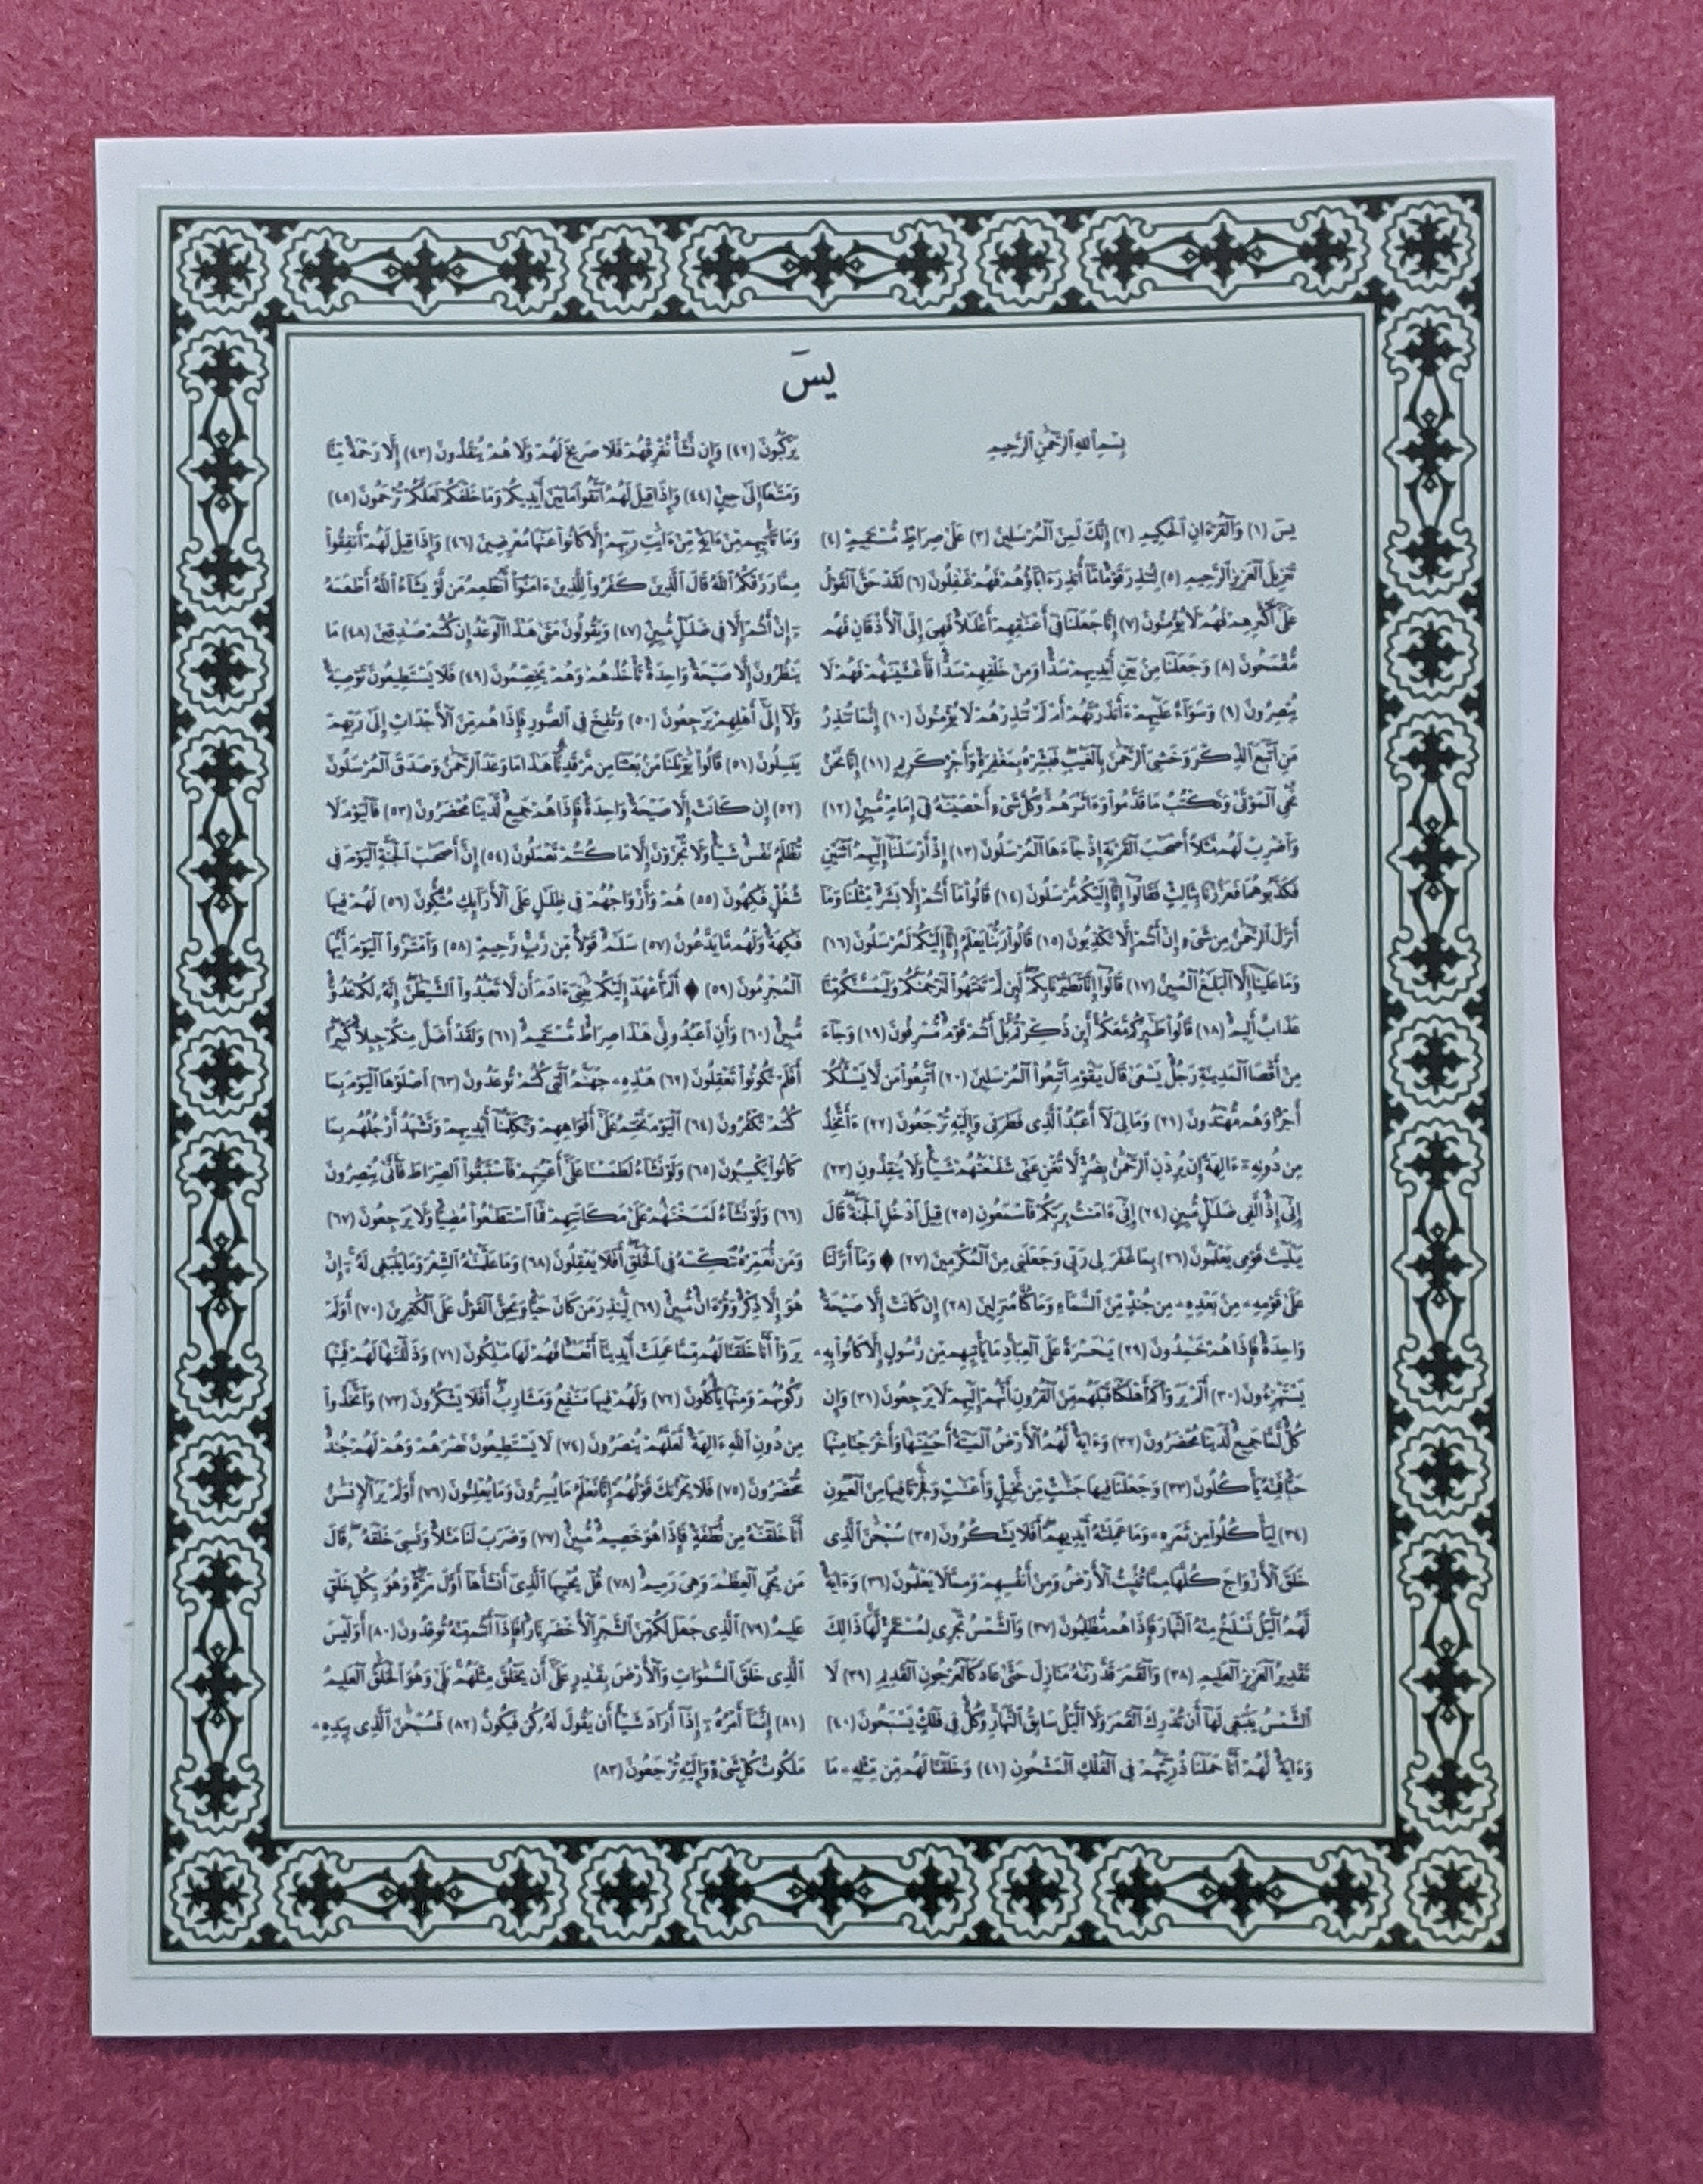 يسٓ
بِسْمِ ٱللَّهِ ٱلرَّحْمَٰنِ ٱلرَّحِيمِ
يسٓ (١) وَٱلْقُرْءَانِ ٱلْحَكِيمِ (٢) إِنَّكَ لَمِنَ ٱلْمُرْسَلِينَ (٣) عَلَىٰ صِرَٰطٍ مُّسْتَقِيمٍ (٤)
تَنزِيلَ ٱلْعَزِيزِ ٱلرَّحِيمِ (٥) لِتُنذِرَ قَوْمًا مَّآ أُنذِرَ ءَابَآؤُهُمْ فَهُمْ غَٰفِلُونَ (٦) لَقَدْ حَقَّ ٱلْقَوْلُ
عَلَىٰٓ أَكْثَرِهِمْ فَهُمْ لَا يُؤْمِنُونَ (٧) إِنَّا جَعَلْنَا فِىٓ أَعْنَٰقِهِمْ أَغْلَٰلًا فَهِىَ إِلَى ٱلْأَذْقَانِ فَهُم
مُّقْمَحُونَ (٨) وَجَعَلْنَا مِنۢ بَيْنِ أَيْدِيهِمْ سَدًّا وَمِنْ خَلْفِهِمْ سَدًّا فَأَغْشَيْنَٰهُمْ فَهُمْ لَا
يُبْصِرُونَ (٩) وَسَوَآءٌ عَلَيْهِمْ ءَأَنذَرْتَهُمْ أَمْ لَمْ تُنذِرْهُمْ لَا يُؤْمِنُونَ (١٠) إِنَّمَا تُنذِرُ
مَنِ ٱتَّبَعَ ٱلذِّكْرَ وَخَشِىَ ٱلرَّحْمَٰنَ بِٱلْغَيْبِ فَبَشِّرْهُ بِمَغْفِرَةٍ وَأَجْرٍ كَرِيمٍ (١١) إِنَّا نَحْنُ
نُحْىِ ٱلْمَوْتَىٰ وَنَكْتُبُ مَا قَدَّمُوا۟ وَءَاثَٰرَهُمْ وَكُلَّ شَىْءٍ أَحْصَيْنَٰهُ فِىٓ إِمَامٍ مُّبِينٍ (١٢)
وَٱضْرِبْ لَهُم مَّثَلًا أَصْحَٰبَ ٱلْقَرْيَةِ إِذْ جَآءَهَا ٱلْمُرْسَلُونَ (١٣) إِذْ أَرْسَلْنَآ إِلَيْهِمُ ٱثْنَيْنِ
فَكَذَّبُوهُمَا فَعَزَّزْنَا بِثَالِثٍ فَقَالُوٓا۟ إِنَّآ إِلَيْكُم مُّرْسَلُونَ (١٤) قَالُوا۟ مَآ أَنتُمْ إِلَّا بَشَرٌ مِّثْلُنَا وَمَآ
أَنزَلَ ٱلرَّحْمَٰنُ مِن شَىْءٍ إِنْ أَنتُمْ إِلَّا تَكْذِبُونَ (١٥) قَالُوا۟ رَبُّنَا يَعْلَمُ إِنَّآ إِلَيْكُمْ لَمُرْسَلُونَ (١٦)
وَمَا عَلَيْنَآ إِلَّا ٱلْبَلَٰغُ ٱلْمُبِينُ (١٧) قَالُوٓا۟ إِنَّا تَطَيَّرْنَا بِكُمْ لَئِن لَّمْ تَنتَهُوا۟ لَنَرْجُمَنَّكُمْ وَلَيَمَسَّنَّكُم مِّنَّا
عَذَابٌ أَلِيمٌ (١٨) قَالُوا۟ طَٰٓئِرُكُم مَّعَكُمْ أَئِن ذُكِّرْتُم بَلْ أَنتُمْ قَوْمٌ مُّسْرِفُونَ (١٩) وَجَآءَ
مِنْ أَقْصَا ٱلْمَدِينَةِ رَجُلٌ يَسْعَىٰ قَالَ يَٰقَوْمِ ٱتَّبِعُوا۟ ٱلْمُرْسَلِينَ (٢٠) ٱتَّبِعُوا۟ مَن لَّا يَسْـَٔلُكُمْ
أَجْرًا وَهُم مُّهْتَدُونَ (٢١) وَمَا لِىَ لَآ أَعْبُدُ ٱلَّذِى فَطَرَنِى وَإِلَيْهِ تُرْجَعُونَ (٢٢) ءَأَتَّخِذُ
مِن دُونِهِۦٓ ءَالِهَةً إِن يُرِدْنِ ٱلرَّحْمَٰنُ بِضُرٍّ لَّا تُغْنِ عَنِّى شَفَٰعَتُهُمْ شَيْـًٔا وَلَا يُنقِذُونِ (٢٣)
إِنِّىٓ إِذًا لَّفِى ضَلَٰلٍ مُّبِينٍ (٢٤) إِنِّىٓ ءَامَنتُ بِرَبِّكُمْ فَٱسْمَعُونِ (٢٥) قِيلَ ٱدْخُلِ ٱلْجَنَّةَ قَالَ
يَٰلَيْتَ قَوْمِى يَعْلَمُونَ (٢٦) بِمَا غَفَرَ لِى رَبِّى وَجَعَلَنِى مِنَ ٱلْمُكْرَمِينَ (٢٧) ♦ وَمَآ أَنزَلْنَا
عَلَىٰ قَوْمِهِۦ مِنۢ بَعْدِهِۦ مِن جُندٍ مِّنَ ٱلسَّمَآءِ وَمَا كُنَّا مُنزِلِينَ (٢٨) إِن كَانَتْ إِلَّا صَيْحَةً
وَٰحِدَةً فَإِذَا هُمْ خَٰمِدُونَ (٢٩) يَٰحَسْرَةً عَلَى ٱلْعِبَادِ مَا يَأْتِيهِم مِّن رَّسُولٍ إِلَّا كَانُوا۟ بِهِۦ
يَسْتَهْزِءُونَ (٣٠) أَلَمْ يَرَوْا۟ كَمْ أَهْلَكْنَا قَبْلَهُم مِّنَ ٱلْقُرُونِ أَنَّهُمْ إِلَيْهِمْ لَا يَرْجِعُونَ (٣١) وَإِن
كُلٌّ لَّمَّا جَمِيعٌ لَّدَيْنَا مُحْضَرُونَ (٣٢) وَءَايَةٌ لَّهُمُ ٱلْأَرْضُ ٱلْمَيْتَةُ أَحْيَيْنَٰهَا وَأَخْرَجْنَا مِنْهَا
حَبًّا فَمِنْهُ يَأْكُلُونَ (٣٣) وَجَعَلْنَا فِيهَا جَنَّٰتٍ مِّن نَّخِيلٍ وَأَعْنَٰبٍ وَفَجَّرْنَا فِيهَا مِنَ ٱلْعُيُونِ
(٣٤) لِيَأْكُلُوا۟ مِن ثَمَرِهِۦ وَمَا عَمِلَتْهُ أَيْدِيهِمْ أَفَلَا يَشْكُرُونَ (٣٥) سُبْحَٰنَ ٱلَّذِى
خَلَقَ ٱلْأَزْوَٰجَ كُلَّهَا مِمَّا تُنۢبِتُ ٱلْأَرْضُ وَمِنْ أَنفُسِهِمْ وَمِمَّا لَا يَعْلَمُونَ (٣٦) وَءَايَةٌ
لَّهُمُ ٱلَّيْلُ نَسْلَخُ مِنْهُ ٱلنَّهَارَ فَإِذَا هُم مُّظْلِمُونَ (٣٧) وَٱلشَّمْسُ تَجْرِى لِمُسْتَقَرٍّ لَّهَا ذَٰلِكَ
تَقْدِيرُ ٱلْعَزِيزِ ٱلْعَلِيمِ (٣٨) وَٱلْقَمَرَ قَدَّرْنَٰهُ مَنَازِلَ حَتَّىٰ عَادَ كَٱلْعُرْجُونِ ٱلْقَدِيمِ (٣٩) لَا
ٱلشَّمْسُ يَنۢبَغِى لَهَآ أَن تُدْرِكَ ٱلْقَمَرَ وَلَا ٱلَّيْلُ سَابِقُ ٱلنَّهَارِ وَكُلٌّ فِى فَلَكٍ يَسْبَحُونَ (٤٠)
وَءَايَةٌ لَّهُمْ أَنَّا حَمَلْنَا ذُرِّيَّتَهُمْ فِى ٱلْفُلْكِ ٱلْمَشْحُونِ (٤١) وَخَلَقْنَا لَهُم مِّن مِّثْلِهِۦ مَا
يَرْكَبُونَ (٤٢) وَإِن نَّشَأْ نُغْرِقْهُمْ فَلَا صَرِيخَ لَهُمْ وَلَا هُمْ يُنقَذُونَ (٤٣) إِلَّا رَحْمَةً مِّنَّا
وَمَتَٰعًا إِلَىٰ حِينٍ (٤٤) وَإِذَا قِيلَ لَهُمُ ٱتَّقُوا۟ مَا بَيْنَ أَيْدِيكُمْ وَمَا خَلْفَكُمْ لَعَلَّكُمْ تُرْحَمُونَ (٤٥)
وَمَا تَأْتِيهِم مِّنْ ءَايَةٍ مِّنْ ءَايَٰتِ رَبِّهِمْ إِلَّا كَانُوا۟ عَنْهَا مُعْرِضِينَ (٤٦) وَإِذَا قِيلَ لَهُمْ أَنفِقُوا۟
مِمَّا رَزَقَكُمُ ٱللَّهُ قَالَ ٱلَّذِينَ كَفَرُوا۟ لِلَّذِينَ ءَامَنُوٓا۟ أَنُطْعِمُ مَن لَّوْ يَشَآءُ ٱللَّهُ أَطْعَمَهُ
ۥٓ إِنْ أَنتُمْ إِلَّا فِى ضَلَٰلٍ مُّبِينٍ (٤٧) وَيَقُولُونَ مَتَىٰ هَٰذَا ٱلْوَعْدُ إِن كُنتُمْ صَٰدِقِينَ (٤٨) مَا
يَنظُرُونَ إِلَّا صَيْحَةً وَٰحِدَةً تَأْخُذُهُمْ وَهُمْ يَخِصِّمُونَ (٤٩) فَلَا يَسْتَطِيعُونَ تَوْصِيَةً
وَلَآ إِلَىٰٓ أَهْلِهِمْ يَرْجِعُونَ (٥٠) وَنُفِخَ فِى ٱلصُّورِ فَإِذَا هُم مِّنَ ٱلْأَجْدَاثِ إِلَىٰ رَبِّهِمْ
يَنسِلُونَ (٥١) قَالُوا۟ يَٰوَيْلَنَا مَنۢ بَعَثَنَا مِن مَّرْقَدِنَا هَٰذَا مَا وَعَدَ ٱلرَّحْمَٰنُ وَصَدَقَ ٱلْمُرْسَلُونَ
(٥٢) إِن كَانَتْ إِلَّا صَيْحَةً وَٰحِدَةً فَإِذَا هُمْ جَمِيعٌ لَّدَيْنَا مُحْضَرُونَ (٥٣) فَٱلْيَوْمَ لَا
تُظْلَمُ نَفْسٌ شَيْـًٔا وَلَا تُجْزَوْنَ إِلَّا مَا كُنتُمْ تَعْمَلُونَ (٥٤) إِنَّ أَصْحَٰبَ ٱلْجَنَّةِ ٱلْيَوْمَ فِى
شُغُلٍ فَٰكِهُونَ (٥٥) هُمْ وَأَزْوَٰجُهُمْ فِى ظِلَٰلٍ عَلَى ٱلْأَرَآئِكِ مُتَّكِـُٔونَ (٥٦) لَهُمْ فِيهَا
فَٰكِهَةٌ وَلَهُم مَّا يَدَّعُونَ (٥٧) سَلَٰمٌ قَوْلًا مِّن رَّبٍّ رَّحِيمٍ (٥٨) وَٱمْتَٰزُوا۟ ٱلْيَوْمَ أَيُّهَا
ٱلْمُجْرِمُونَ (٥٩) ♦ أَلَمْ أَعْهَدْ إِلَيْكُمْ يَٰبَنِىٓ ءَادَمَ أَن لَّا تَعْبُدُوا۟ ٱلشَّيْطَٰنَ إِنَّهُۥ لَكُمْ عَدُوٌّ
مُّبِينٌ (٦٠) وَأَنِ ٱعْبُدُونِى هَٰذَا صِرَٰطٌ مُّسْتَقِيمٌ (٦١) وَلَقَدْ أَضَلَّ مِنكُمْ جِبِلًّا كَثِيرًا
أَفَلَمْ تَكُونُوا۟ تَعْقِلُونَ (٦٢) هَٰذِهِۦ جَهَنَّمُ ٱلَّتِى كُنتُمْ تُوعَدُونَ (٦٣) ٱصْلَوْهَا ٱلْيَوْمَ بِمَا
كُنتُمْ تَكْفُرُونَ (٦٤) ٱلْيَوْمَ نَخْتِمُ عَلَىٰٓ أَفْوَٰهِهِمْ وَتُكَلِّمُنَآ أَيْدِيهِمْ وَتَشْهَدُ أَرْجُلُهُم بِمَا
كَانُوا۟ يَكْسِبُونَ (٦٥) وَلَوْ نَشَآءُ لَطَمَسْنَا عَلَىٰٓ أَعْيُنِهِمْ فَٱسْتَبَقُوا۟ ٱلصِّرَٰطَ فَأَنَّىٰ يُبْصِرُونَ
(٦٦) وَلَوْ نَشَآءُ لَمَسَخْنَٰهُمْ عَلَىٰ مَكَانَتِهِمْ فَمَا ٱسْتَطَٰعُوا۟ مُضِيًّا وَلَا يَرْجِعُونَ (٦٧)
وَمَن نُّعَمِّرْهُ نُنَكِّسْهُ فِى ٱلْخَلْقِ أَفَلَا يَعْقِلُونَ (٦٨) وَمَا عَلَّمْنَٰهُ ٱلشِّعْرَ وَمَا يَنۢبَغِى لَهُۥٓ إِنْ
هُوَ إِلَّا ذِكْرٌ وَقُرْءَانٌ مُّبِينٌ (٦٩) لِّيُنذِرَ مَن كَانَ حَيًّا وَيَحِقَّ ٱلْقَوْلُ عَلَى ٱلْكَٰفِرِينَ (٧٠) أَوَلَمْ
يَرَوْا۟ أَنَّا خَلَقْنَا لَهُم مِّمَّا عَمِلَتْ أَيْدِينَآ أَنْعَٰمًا فَهُمْ لَهَا مَٰلِكُونَ (٧١) وَذَلَّلْنَٰهَا لَهُمْ فَمِنْهَا
رَكُوبُهُمْ وَمِنْهَا يَأْكُلُونَ (٧٢) وَلَهُمْ فِيهَا مَنَٰفِعُ وَمَشَارِبُ أَفَلَا يَشْكُرُونَ (٧٣) وَٱتَّخَذُوا۟
مِن دُونِ ٱللَّهِ ءَالِهَةً لَّعَلَّهُمْ يُنصَرُونَ (٧٤) لَا يَسْتَطِيعُونَ نَصْرَهُمْ وَهُمْ لَهُمْ جُندٌ
مُّحْضَرُونَ (٧٥) فَلَا يَحْزُنكَ قَوْلُهُمْ إِنَّا نَعْلَمُ مَا يُسِرُّونَ وَمَا يُعْلِنُونَ (٧٦) أَوَلَمْ يَرَ ٱلْإِنسَٰنُ
أَنَّا خَلَقْنَٰهُ مِن نُّطْفَةٍ فَإِذَا هُوَ خَصِيمٌ مُّبِينٌ (٧٧) وَضَرَبَ لَنَا مَثَلًا وَنَسِىَ خَلْقَهُۥ قَالَ
مَن يُحْىِ ٱلْعِظَٰمَ وَهِىَ رَمِيمٌ (٧٨) قُلْ يُحْيِيهَا ٱلَّذِىٓ أَنشَأَهَآ أَوَّلَ مَرَّةٍ وَهُوَ بِكُلِّ خَلْقٍ
عَلِيمٌ (٧٩) ٱلَّذِى جَعَلَ لَكُم مِّنَ ٱلشَّجَرِ ٱلْأَخْضَرِ نَارًا فَإِذَآ أَنتُم مِّنْهُ تُوقِدُونَ (٨٠) أَوَلَيْسَ
ٱلَّذِى خَلَقَ ٱلسَّمَٰوَٰتِ وَٱلْأَرْضَ بِقَٰدِرٍ عَلَىٰٓ أَن يَخْلُقَ مِثْلَهُم بَلَىٰ وَهُوَ ٱلْخَلَّٰقُ ٱلْعَلِيمُ
(٨١) إِنَّمَآ أَمْرُهُۥٓ إِذَآ أَرَادَ شَيْـًٔا أَن يَقُولَ لَهُۥ كُن فَيَكُونُ (٨٢) فَسُبْحَٰنَ ٱلَّذِى بِيَدِهِۦ
مَلَكُوتُ كُلِّ شَىْءٍ وَإِلَيْهِ تُرْجَعُونَ (٨٣)